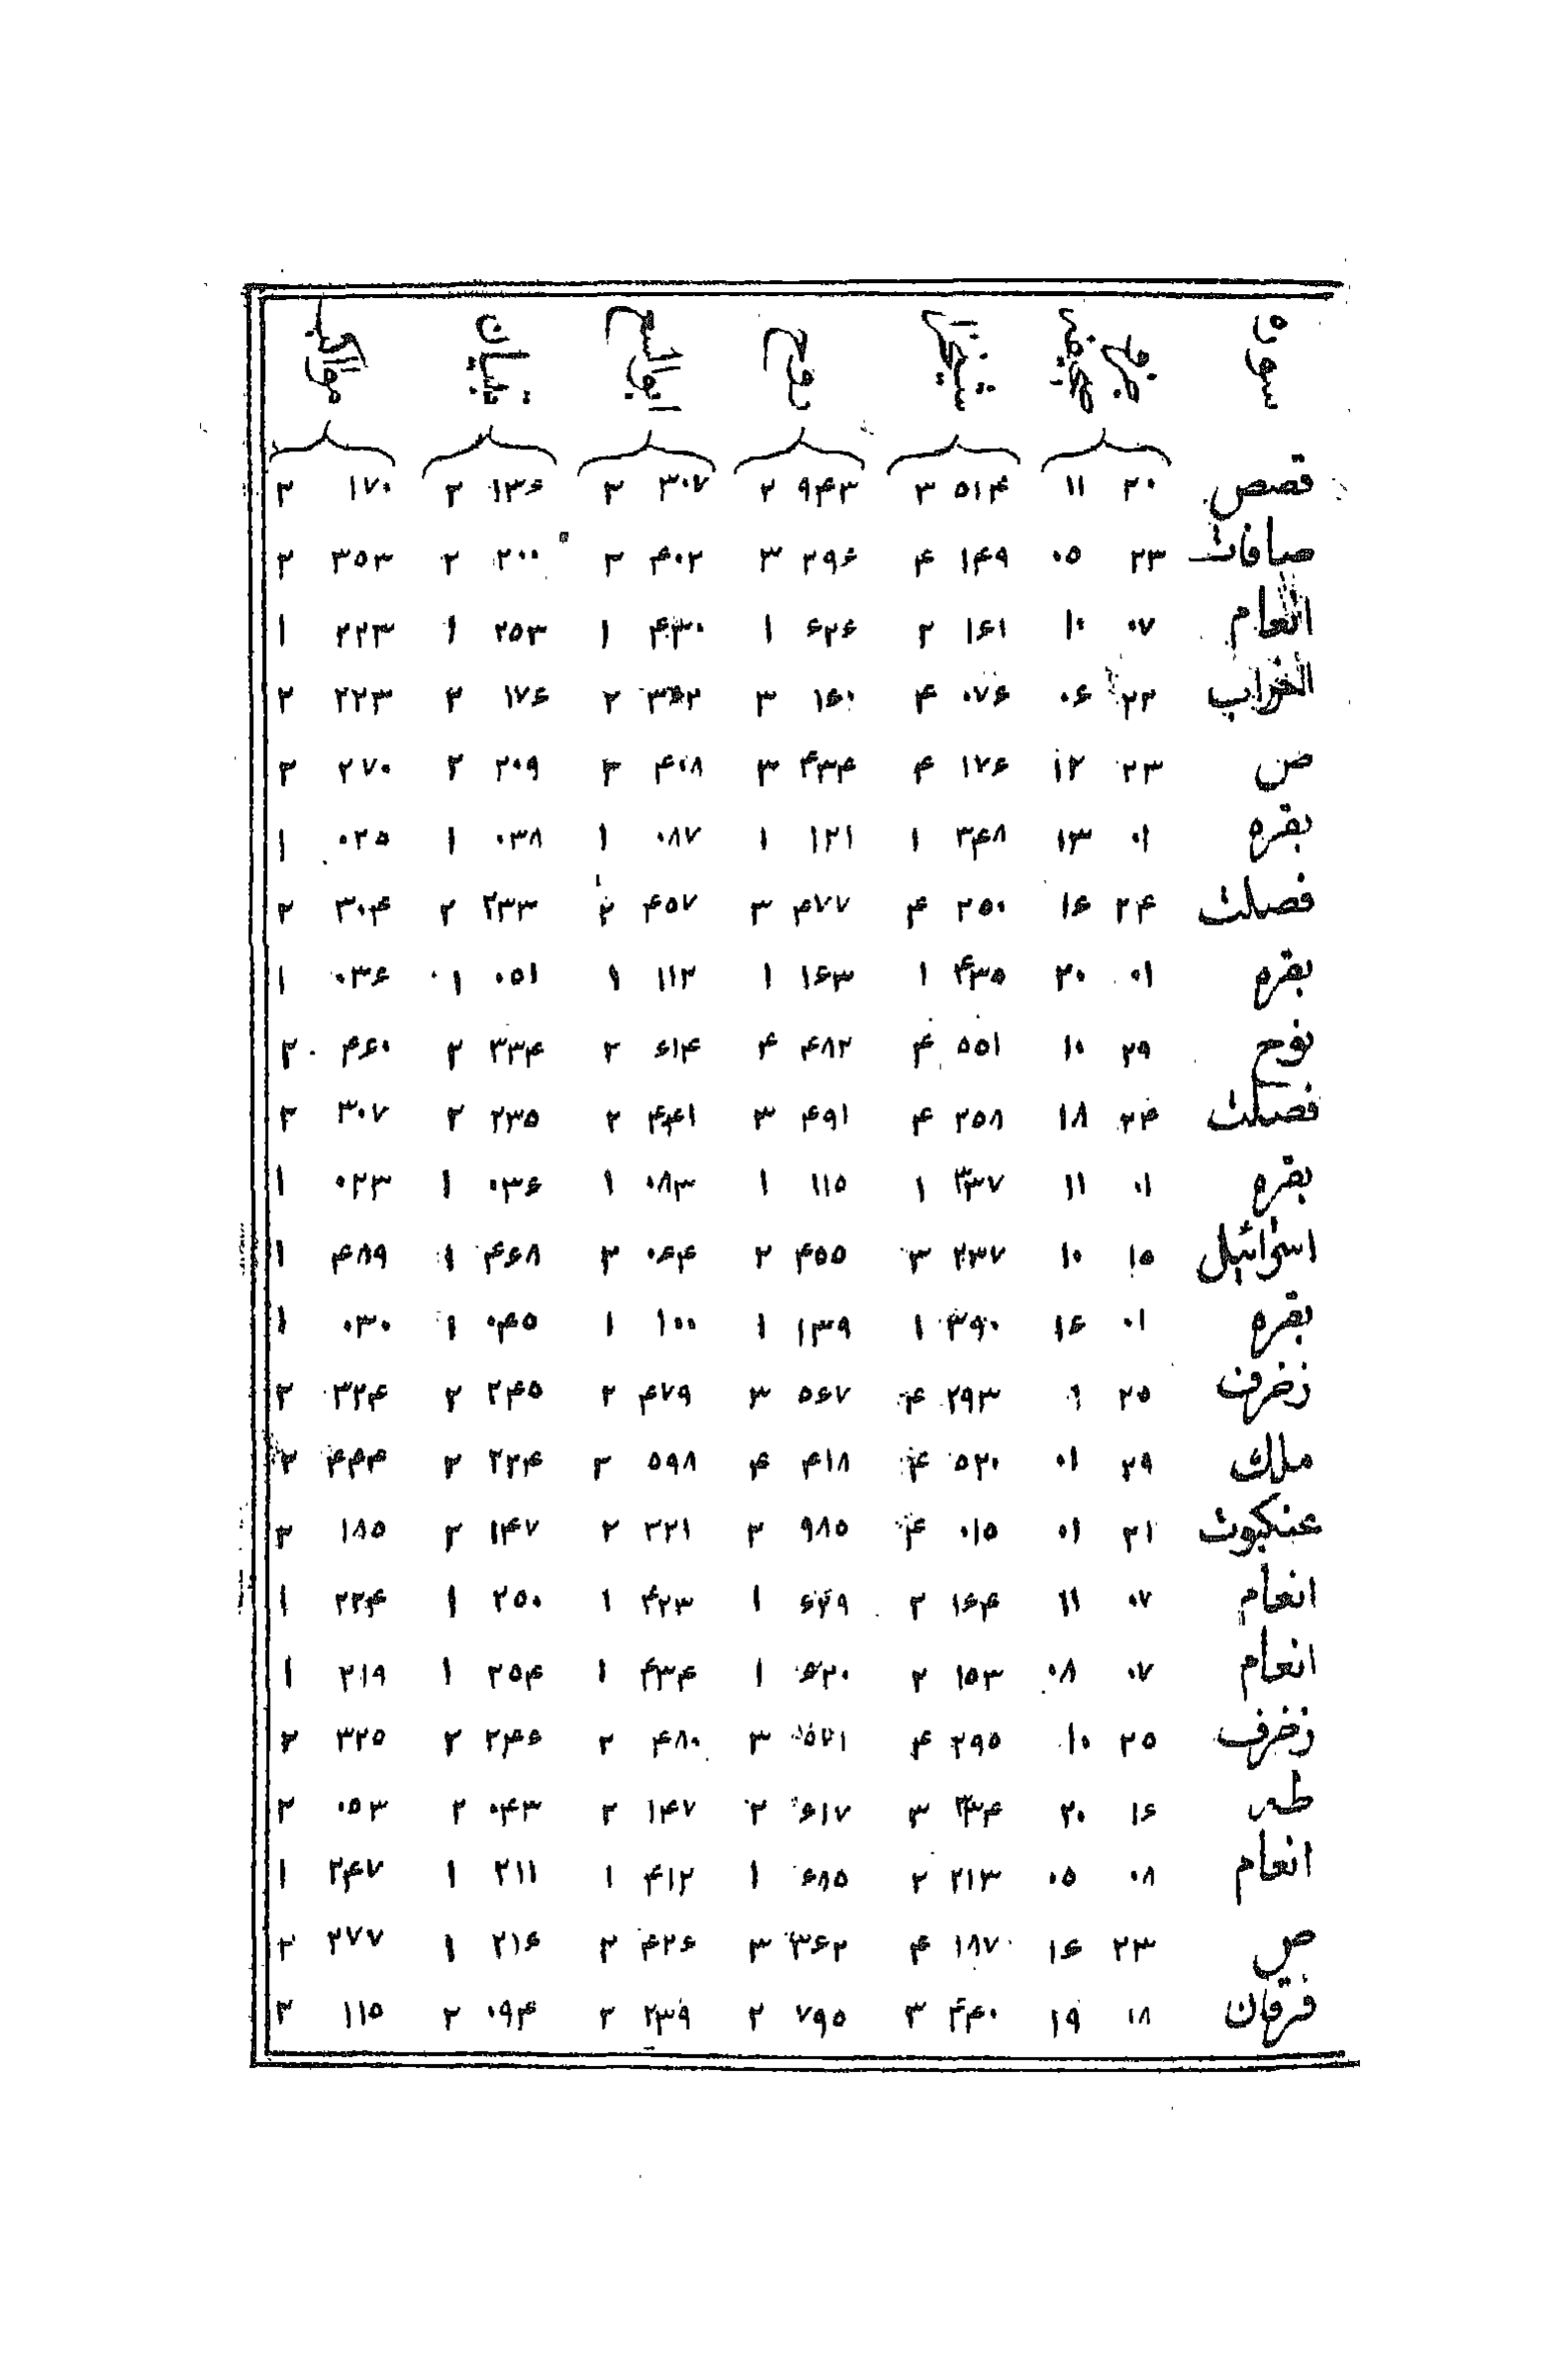 سوره جزء صحیفه شیخ‌زاده روح ابوالسعود تبیان مواکب
قصص ۲۰ ۱۱ ۵۱۴ ۳ ۹۴۳ ۲ ۳۰۷ ۲ ۱۳۶ ۲ ۱۷۰ ۲
صافات ۲۳ ۰۵ ۱۴۹ ۴ ۲۹۶ ۳ ۴۰۲ ۲ ۲۰۰ ۲ ۳۵۳ ۲
انعام ۰۷ ۱۰ ۱۶۱ ۲ ۶۲۶ ۱ ۴۳۰ ۱ ۲۵۳ ۱ ۲۲۳ ۱
۲۲ ۰۶ ۰۷۶ ۴ ۱۶۰ ۳ ۲ ۱۷۶ ۲ ۲۲۳ ۲
ص ۲۳ ۱۲ ۱۷۶ ۴ ۴۳۴ ۳ ۴۰۸ ۲ ۲۰۹ ۲ ۲۷۰ ۲
بقره ۰۱ ۱۳ ۳۴۸ ۱ ۱۲۱ ۱ ۰۸۷ ۱ ۰۳۸ ۱ ۰۲۵ ۱
فصلت ۲۴ ۱۶ ۲۵۰ ۴ ۴۷۷ ۳ ۴۵۷ ۲ ۲۳۳ ۲ ۳۰۴ ۲
بقره ۰۱ ۲۰ ۴۳۵ ۱ ۱۶۳ ۱ ۱۱۲ ۱ ۰۵۱ ۱ ۰۳۶ ۱
نوح ۲۹ ۱۰ ۵۵۱ ۴ ۴۸۲ ۴ ۶۱۴ ۲ ۳۳۴ ۲ ۴۶۰ ۲
فصلت ۲۴ ۱۸ ۲۵۸ ۴ ۴۹۱ ۳ ۴۴۱ ۲ ۲۳۵ ۲ ۳۰۷ ۲
بقره ۰۱ ۱۱ ۳۳۷ ۱ ۱۱۵ ۱ ۰۸۳ ۱ ۰۳۶ ۱ ۰۲۳ ۱
اسرائیل ۱۵ ۱۰ ۲۳۷ ۳ ۴۵۵ ۲ ۰۶۴ ۲ ۴۶۸ ۱ ۴۸۹ ۱
بقره ۰۱ ۱۶ ۳۹۰ ۱ ۱۳۹ ۱ ۱۰۰ ۱ ۰۴۵ ۱ ۰۳۰ ۱
زخرف ۲۵ ۹ ۲۹۳ ۴ ۵۶۷ ۳ ۴۷۹ ۲ ۲۴۵ ۲ ۳۲۴ ۲
ملك ۲۹ ۰۱ ۵۲۰ ۴ ۴۱۸ ۴ ۵۹۸ ۲ ۲۲۴ ۲ ۴۴۴ ۲
عنکبوت ۲۱ ۰۱ ۰۱۵ ۴ ۹۸۵ ۲ ۳۲۱ ۲ ۱۴۷ ۲ ۱۸۵ ۲
انعام ۰۷ ۱۱ ۱۶۴ ۲ ۶۲۹ ۱ ۴۲۳ ۱ ۲۵۰ ۱ ۲۲۴ ۱
انعام ۰۷ ۰۸ ۱۵۳ ۲ ۶۲۰ ۱ ۴۳۴ ۱ ۲۵۴ ۱ ۲۱۹ ۱
زخرف ۲۵ ۱۰ ۲۹۵ ۴ ۵۷۱ ۳ ۴۸۰ ۲ ۲۴۶ ۲ ۳۲۵ ۲
طه ۱۶ ۲۰ ۳۳۴ ۳ ۶۱۷ ۲ ۱۴۷ ۲ ۰۴۳ ۲ ۰۵۳ ۲
انعام ۰۸ ۰۵ ۲۱۳ ۲ ۶۸۵ ۱ ۴۱۲ ۱ ۲۱۱ ۱ ۲۴۷ ۱
ص ۲۳ ۱۶ ۱۸۷ ۴ ۳۶۲ ۳ ۴۲۶ ۲ ۲۱۶ ۱ ۲۷۷ ۲
فرقان ۱۸ ۱۹ ۴۴۰ ۳ ۷۹۵ ۲ ۲۳۹ ۲ ۰۹۴ ۲ ۱۱۵ ۲